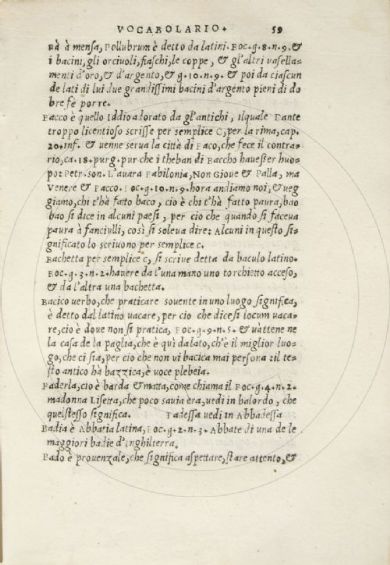 VOCABOLARIO. 59
Dà à mensa, Pollubrum è detto da latini. Boc. g. 8. n. 9. &
i bacini, gli orciuoli, fiaschi, le coppe, & gl'altri vasella
menti d'oro, & d'argento, & g. 10. n. 9. & poi da ciascun
de lati di lui due grandissimi bacini d'argento pieni di do
bre fè porre.
Bacco è quello Iddio adorato da gl'antichi, ilquale Dante
troppo licentioso scrisse per semplice C, per la rima, cap.
20. inf. & venne serva la città di Baco, che fece il contra-
rio, ca. 18. purg. pur che i theban di Baccho havesser huo
po: Petr. son. L'avara Babilonia, Non Giove & Palla, ma
Venere & Bacco. Boc. g. 10. n. 9. hora andiamo noi, & veg
giamo, chi t'hà fatto baco, cio è chi t'hà fatto paura, bao
bao si dice in alcuni paesi, per cio che quando si faceva
paura à fanciulli, così si soleva dire: Alcuni in questo si-
gnificato lo scrivono per semplice c.
Bachetta per semplice c, si scrive detta da baculo latino.
Boc. g. 3. n. 2. havere da l'una mano uno torchietto acceso,
& da l'altra una bachetta.
Bacico verbo, che praticare sovente in uno luogo significa,
è detto dal latino vacare, per cio che dicesi locum vaca-
re, cio è dove non si pratica, Boc. g. 9. n. 5. & vattene ne
la casa de la paglia, che è quì dalato, ch'è il miglior luo-
go, che ci sia, per cio che non vi bacica mai persona: il te-
sto antico hà bazzica, è voce plebeia.
Baderla, cio è barda & matta, come chiama il Boc. g. 4. n. 2.
madonna Lisetta, che poco savia era, vedi in balordo, che
quel stesso significa. Badessa vedi in Abbadessa
Badia è Abbatia latina, Boc. g. 2. n. 3. Abbate di una de le
maggiori badie d'Inghilterra.
Bado è provenzale, che significa aspettare, stare attento, &